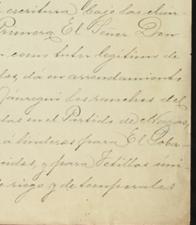 escritura bajo las clau
Primera El Señor Don
como tutor legítimo de
da en arrendamiento
Jáuregui los ranchos del
en el Partido de Nazas,
linderos para El Pobla
y para Tetillas sin
riego y de temporales